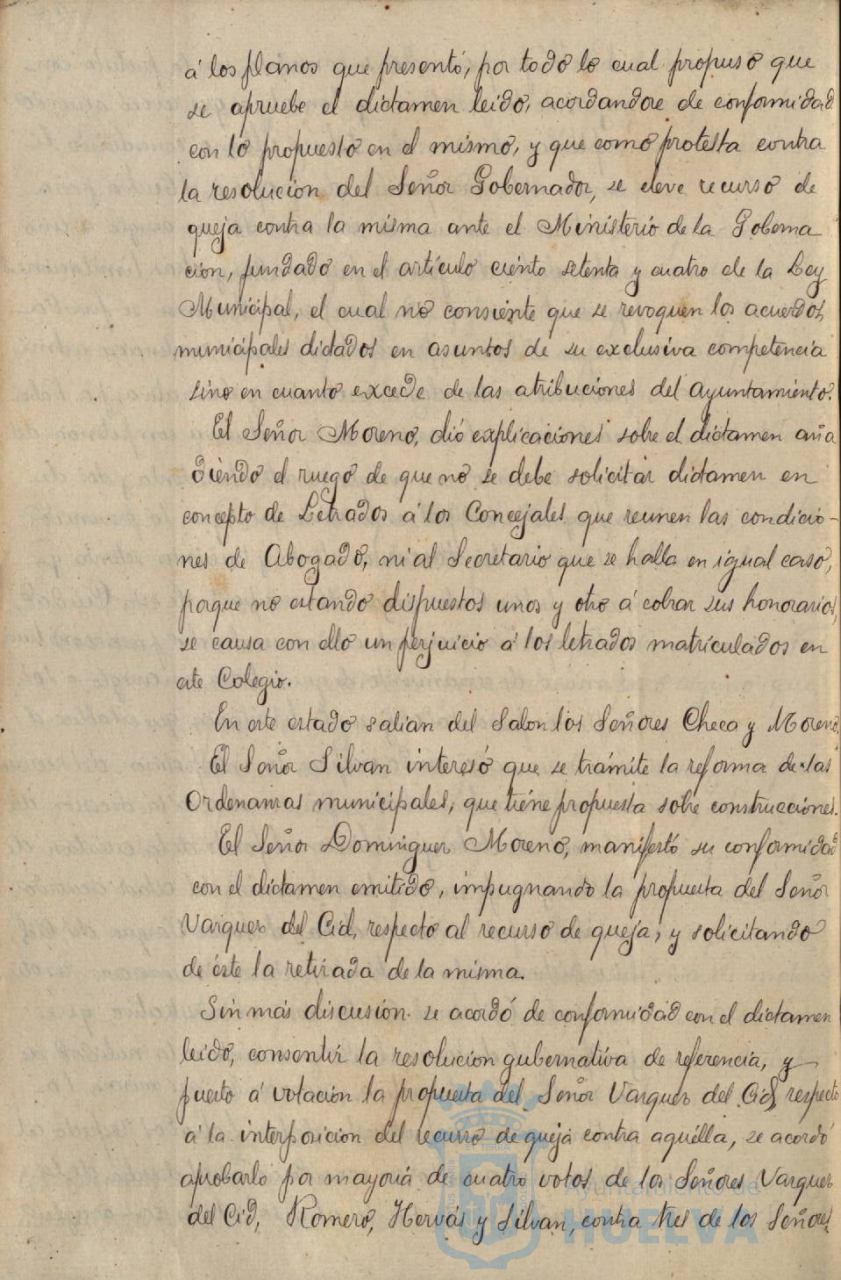 á los planos que presentó, por todo lo cual propuso que
se apruebe el dictamen leido, acordandose de conformidad
con lo propuesto en el mismo, y que como protesta contra
la resolucion del Señor Gobernador, se eleve recurso de
queja contra la misma ante el Ministerio de la Goberna
cion, fundado en el artículo ciento setenta y cuatro de la Ley
Municipal, el cual no consiente que se revoquen los acuerdos,
municipales dictados en asuntos de su exclusiva competencia
sino en cuanto excede de las atribuciones del Ayuntamiento.
El Señor Moreno, dió explicaciones sobre el dictamen aña
diendo el ruego de que no se debe solicitar dictamen en
concepto de Letrados á los Concejales que reunen las condicio-
nes de Abogado, ni al Secretario que se halla en igual caso,
porque no estando dispuestos unos y otro á cobrar sus honorarios,
se causa con ello un perjuicio á los letrados matriculados en
este Colegio.
En este estado salian del Salon los Señores Checa y Moreno.
El Señor Silvan interesó que se trámite la reforma de las
Ordenanzas municipales, que tiene propuesta sobre construcciones.
El Señor Dominguez Moreno, manifestó su conformidad
con el dictamen emitido, impugnando la propuesta del Señor
Vazquez del Cid, respecto al recurso de queja, y solicitando
de éste la retirada de la misma.
Sin más discusion se acordó de conformidad con el dictamen
leido, consentir la resolucion gubernativa de referencia, y
puesto á votación la propuesta del Señor Vazquez del Cid, respecto
á la interposicion del recurso de queja contra aquélla, se acordó
aprobarlo por mayoría de cuatro votos de los Señores Vazquez
del Cid, Romero, Hervás y Silvan, contra tres de los Señores
Ayuntamiento de
HUELVA